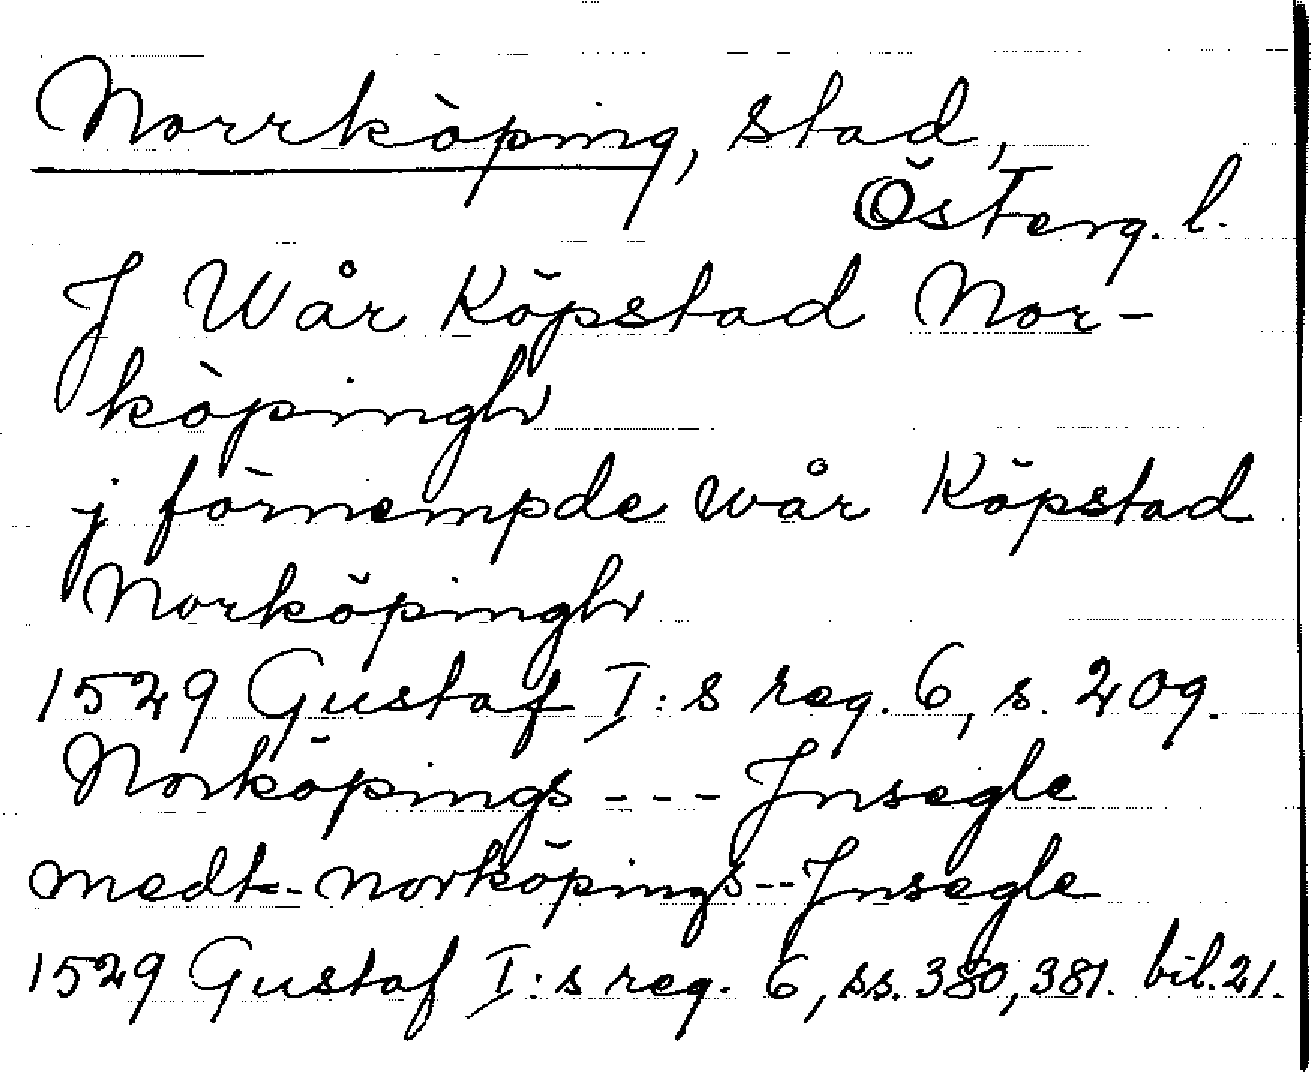 Norrköping, stad,
Österg. l.
J Wår Köpstad Nor-
köpingh
j förnempde wår Köpstad
Norköpingh
1529 Gustaf I:s reg. 6, s. 209.
Norköpings --- Jnsegle
medt - norköpings -- Jnsegle
1529 Gustaf I:s reg. 6, ss. 380, 381. bil. 21.